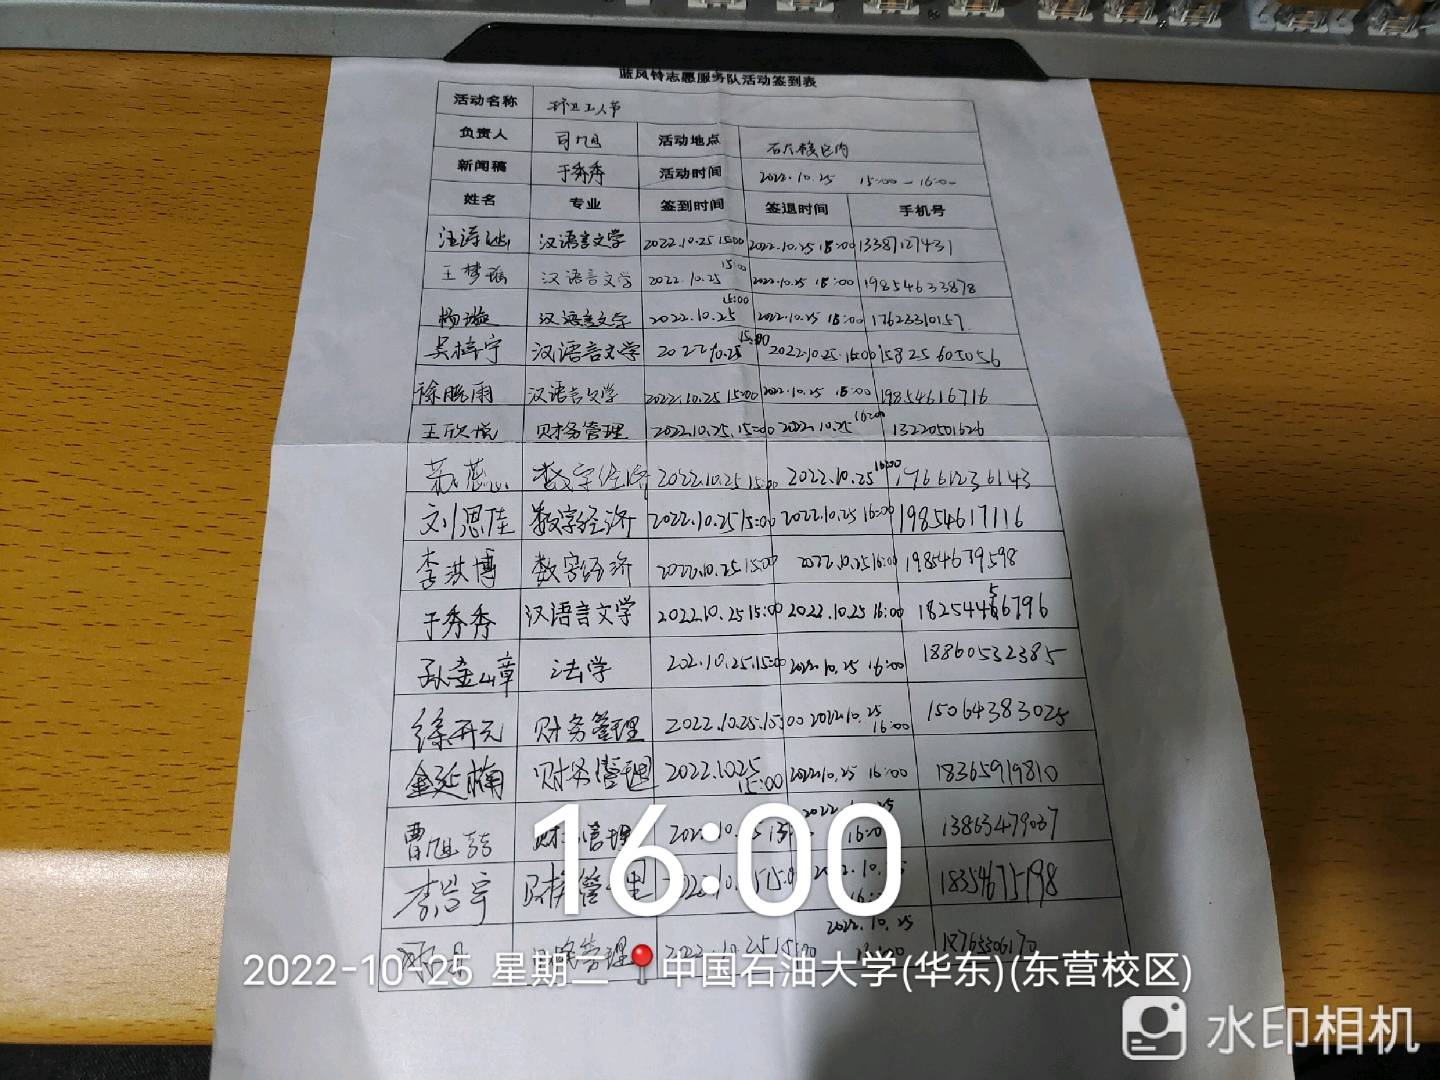 蓝风铃志愿服务队活动签到表
活动名称 环卫工人节
负责人 司旭 活动地点 石大校区内
新闻稿 于秀秀 活动时间 2022.10.25 15:00-16:00
姓名 专业 签到时间 签退时间 手机号
汉语言文学 2022.10.25 15:00 2022.10.25 16:00 13387127431
王梦瑶 汉语言文学 2022.10.25 15:00 2022.10.25 16:00 19854633878
杨璇 汉语言文学 2022.10.25 15:00 2022.10.25 16:00 17623310157
吴梓宁 汉语言文学 2022.10.25 15:00 2022.10.25 16:00 15825605056
徐晓雨 汉语言文学 2022.10.25 15:00 2022.10.25 16:00 19854616716
王欣悦 财务管理 2022.10.25. 15:00 2022.10.25 16:00 13220501626
数字经济 2022.10.25 15:00 2022.10.25 16:00 17661236143
刘思佳 数字经济 2022.10.25 15:00 2022.10.25 16:00 19854617116
李洪博 数字经济 2022.10.25 15:00 2022.10.25 16:00 19854679598
于秀秀 汉语言文学 2022.10.25 15:00 2022.10.25 16:00
孙金山章 法学 202.10.25.15:00 2022.10.25 16:00 18860532385
徐开元 财务管理 2022.10.25.15:00 2022.10.25 16:00 15064383025
金延楠 财务管理 2022.10.25 15:00 2022.10.25 16:00 18365919810
曹旭 财务管理 16:00 13863479037
李浩宇 财务管理 18354675198
管理 2022.10.25 15:00 2022.10.25 18765306170
16:00
2022-10-25 星期二 中国石油大学(华东)(东营校区)
水印相机